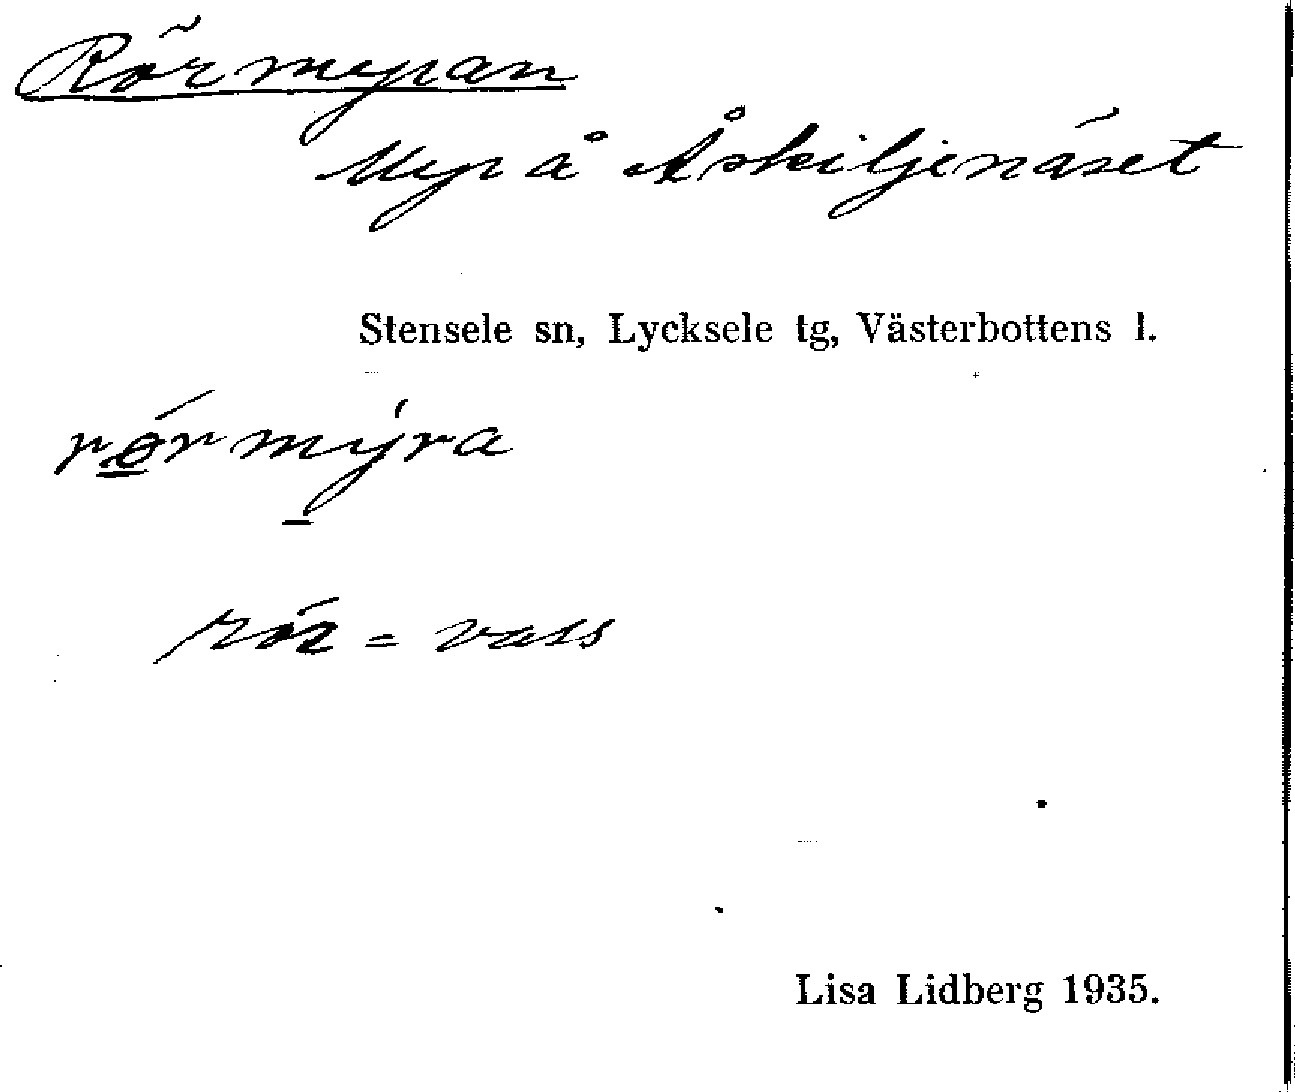 Rörmyran
Myr å Åskiljenäset
Stensele sn, Lycksele tg, Västerbottens l.
rørmýra
rör = vass
Lisa Lidberg 1935.